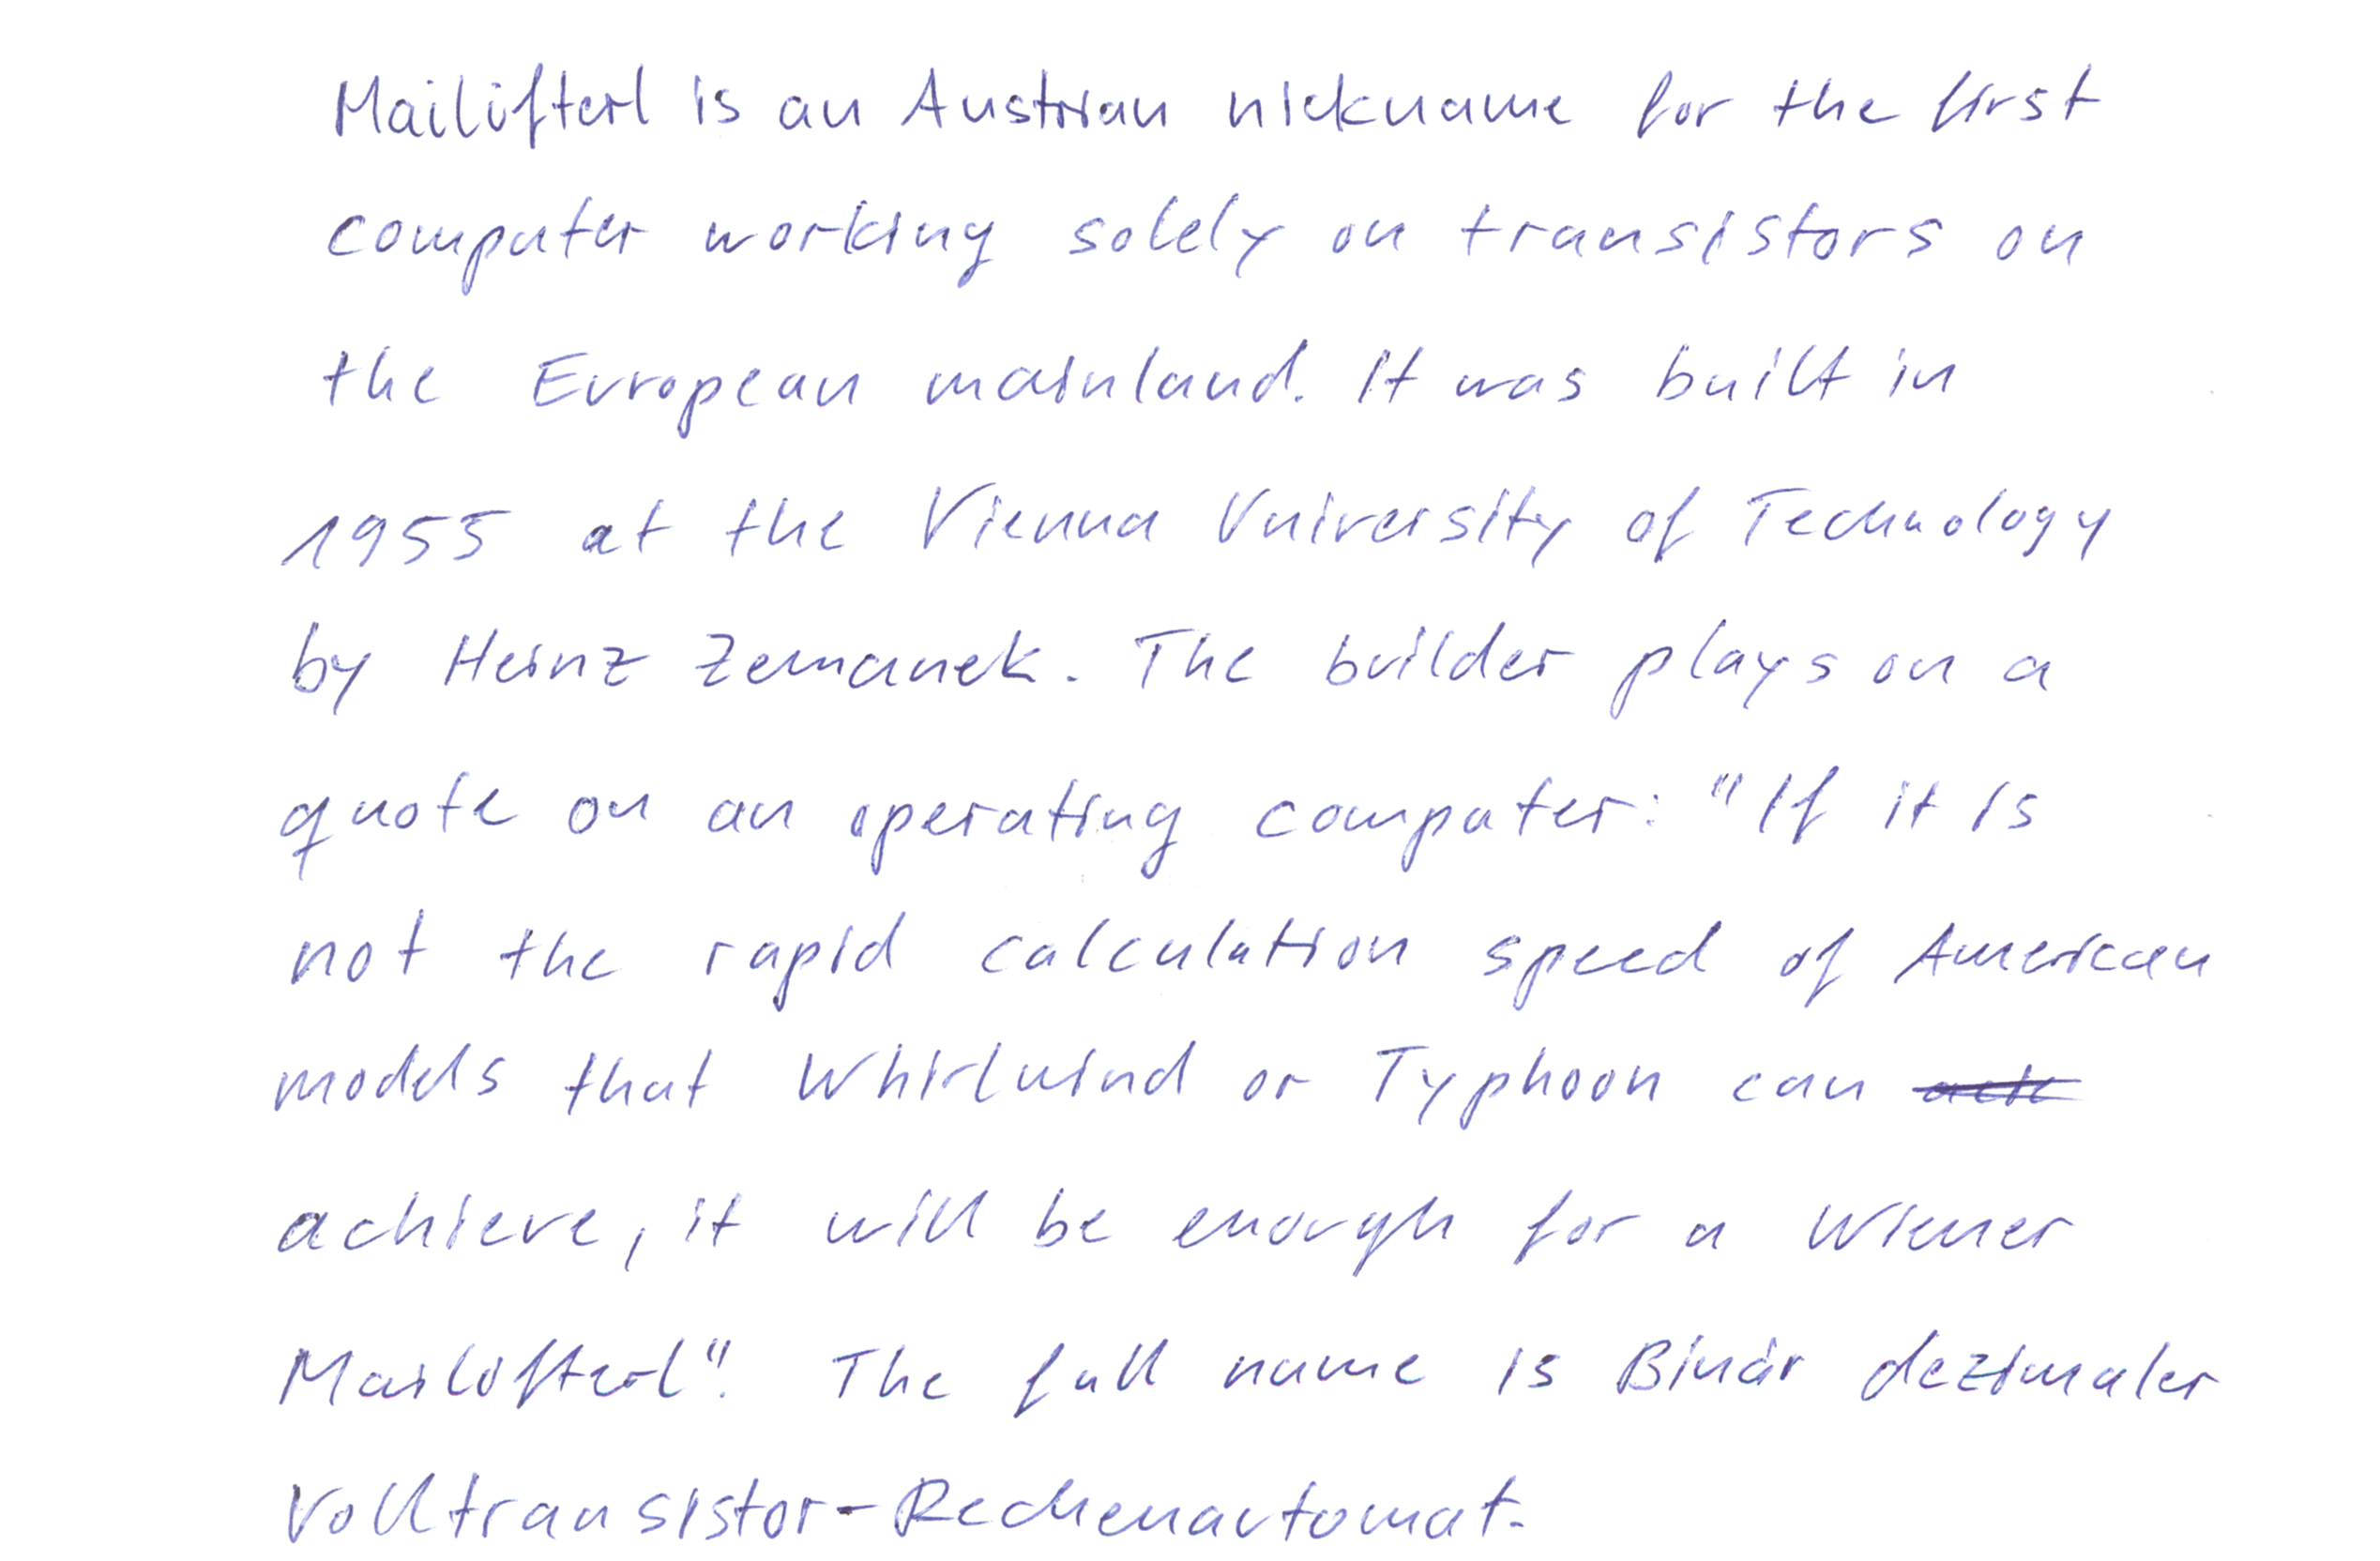 Mailüfterl is an Austrian nickname for the first
computer working solely on transistors on
the European mainland. It was built in
1955 at the Vienna University of Technology
by Heinz Zemanek. The builder plays on a
quote on an operating computer: "If it is
not the rapid calculation speed of American
models that Whirlwind or Typhoon can
achieve, it will be enough for a Wiener
Mailüfterl". The full name is Binär dezimaler
Volltransistor-Rechenautomat.